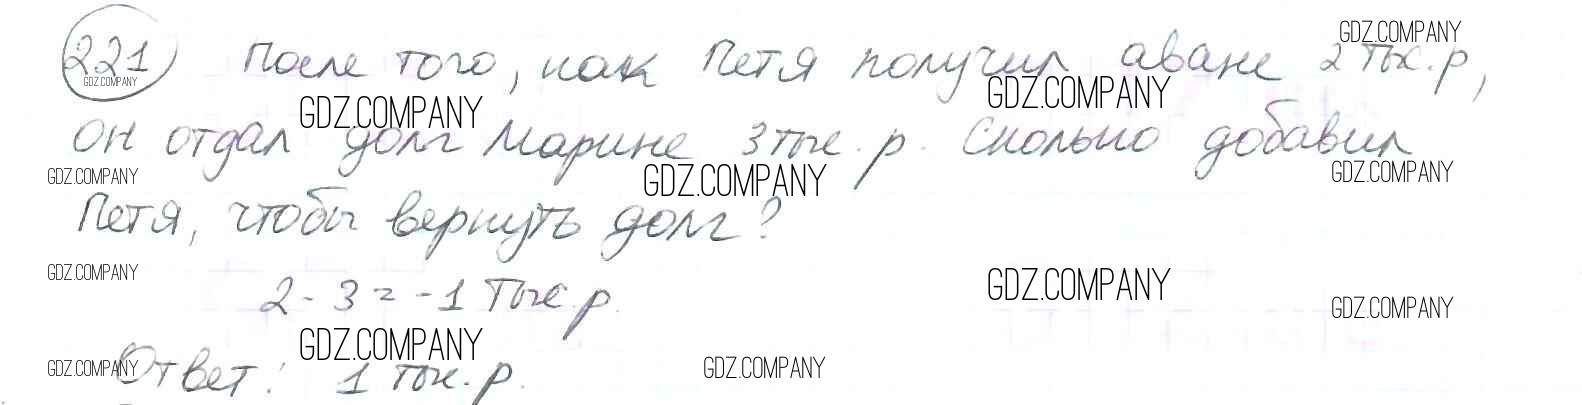 221 После того, как Петя получил аванс 2 тыс. р,
он отдал долг Марине 3 тыс. р. Сколько добавил
Петя, чтобы вернуть долг?
2 - 3 = -1 тыс. р.
Ответ: 1 тыс. р.
GDZ.COMPANY
GDZ.COMPANY
GDZ.COMPANY
GDZ.COMPANY
GDZ.COMPANY
GDZ.COMPANY
GDZ.COMPANY
GDZ.COMPANY
GDZ.COMPANY
GDZ.COMPANY
GDZ.COMPANY
GDZ.COMPANY
GDZ.COMPANY